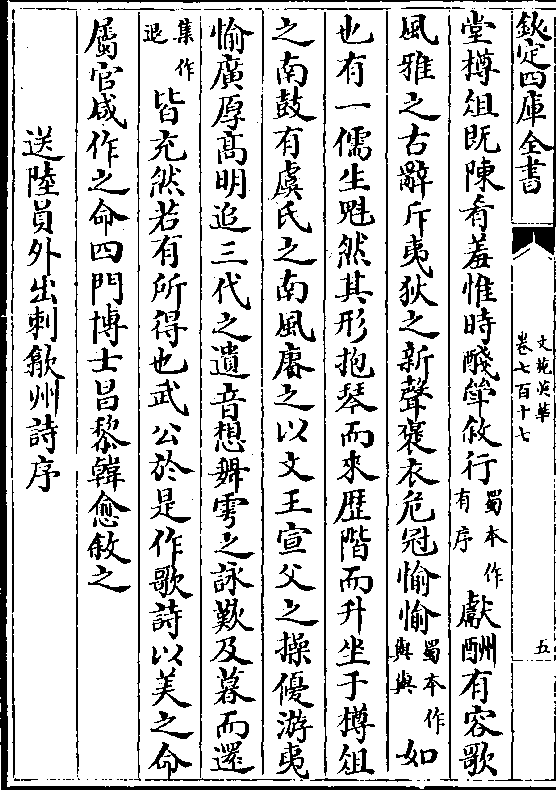 欽定四庫全書
文苑英華
卷七百十七
五
堂樽俎既陳肴羞惟時醆斝敘行蜀本作有序獻酬有容歌
風雅之古辭斥夷狄之新聲褒衣危冠愉愉蜀本作與與如
也有一儒生魁然其形抱琴而來歷階而升坐于樽俎
之南鼓有虞氏之南風賡之以文王宣父之操優游夷
愉廣厚高明追三代之遺音想舞雩之詠歎及暮而還
集作退皆充然若有所得也武公於是作歌詩以美之命
屬官咸作之命四門博士昌黎韓愈敘之
送陸員外出刺歙州詩序